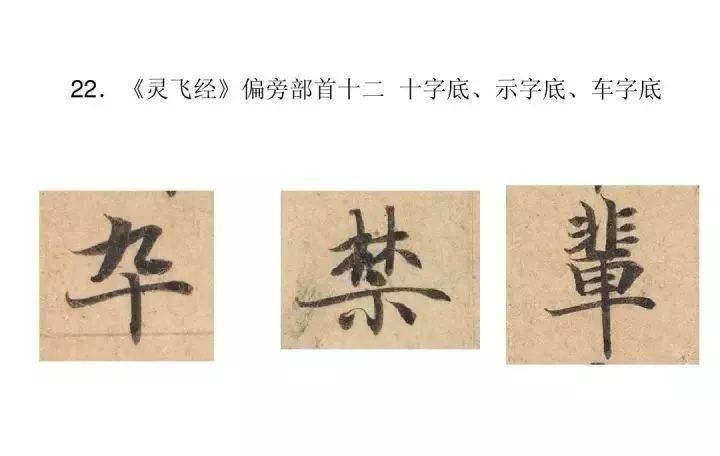 22．《灵飞经》偏旁部首十二 十字底、示字底、车字底
卆 禁 輩